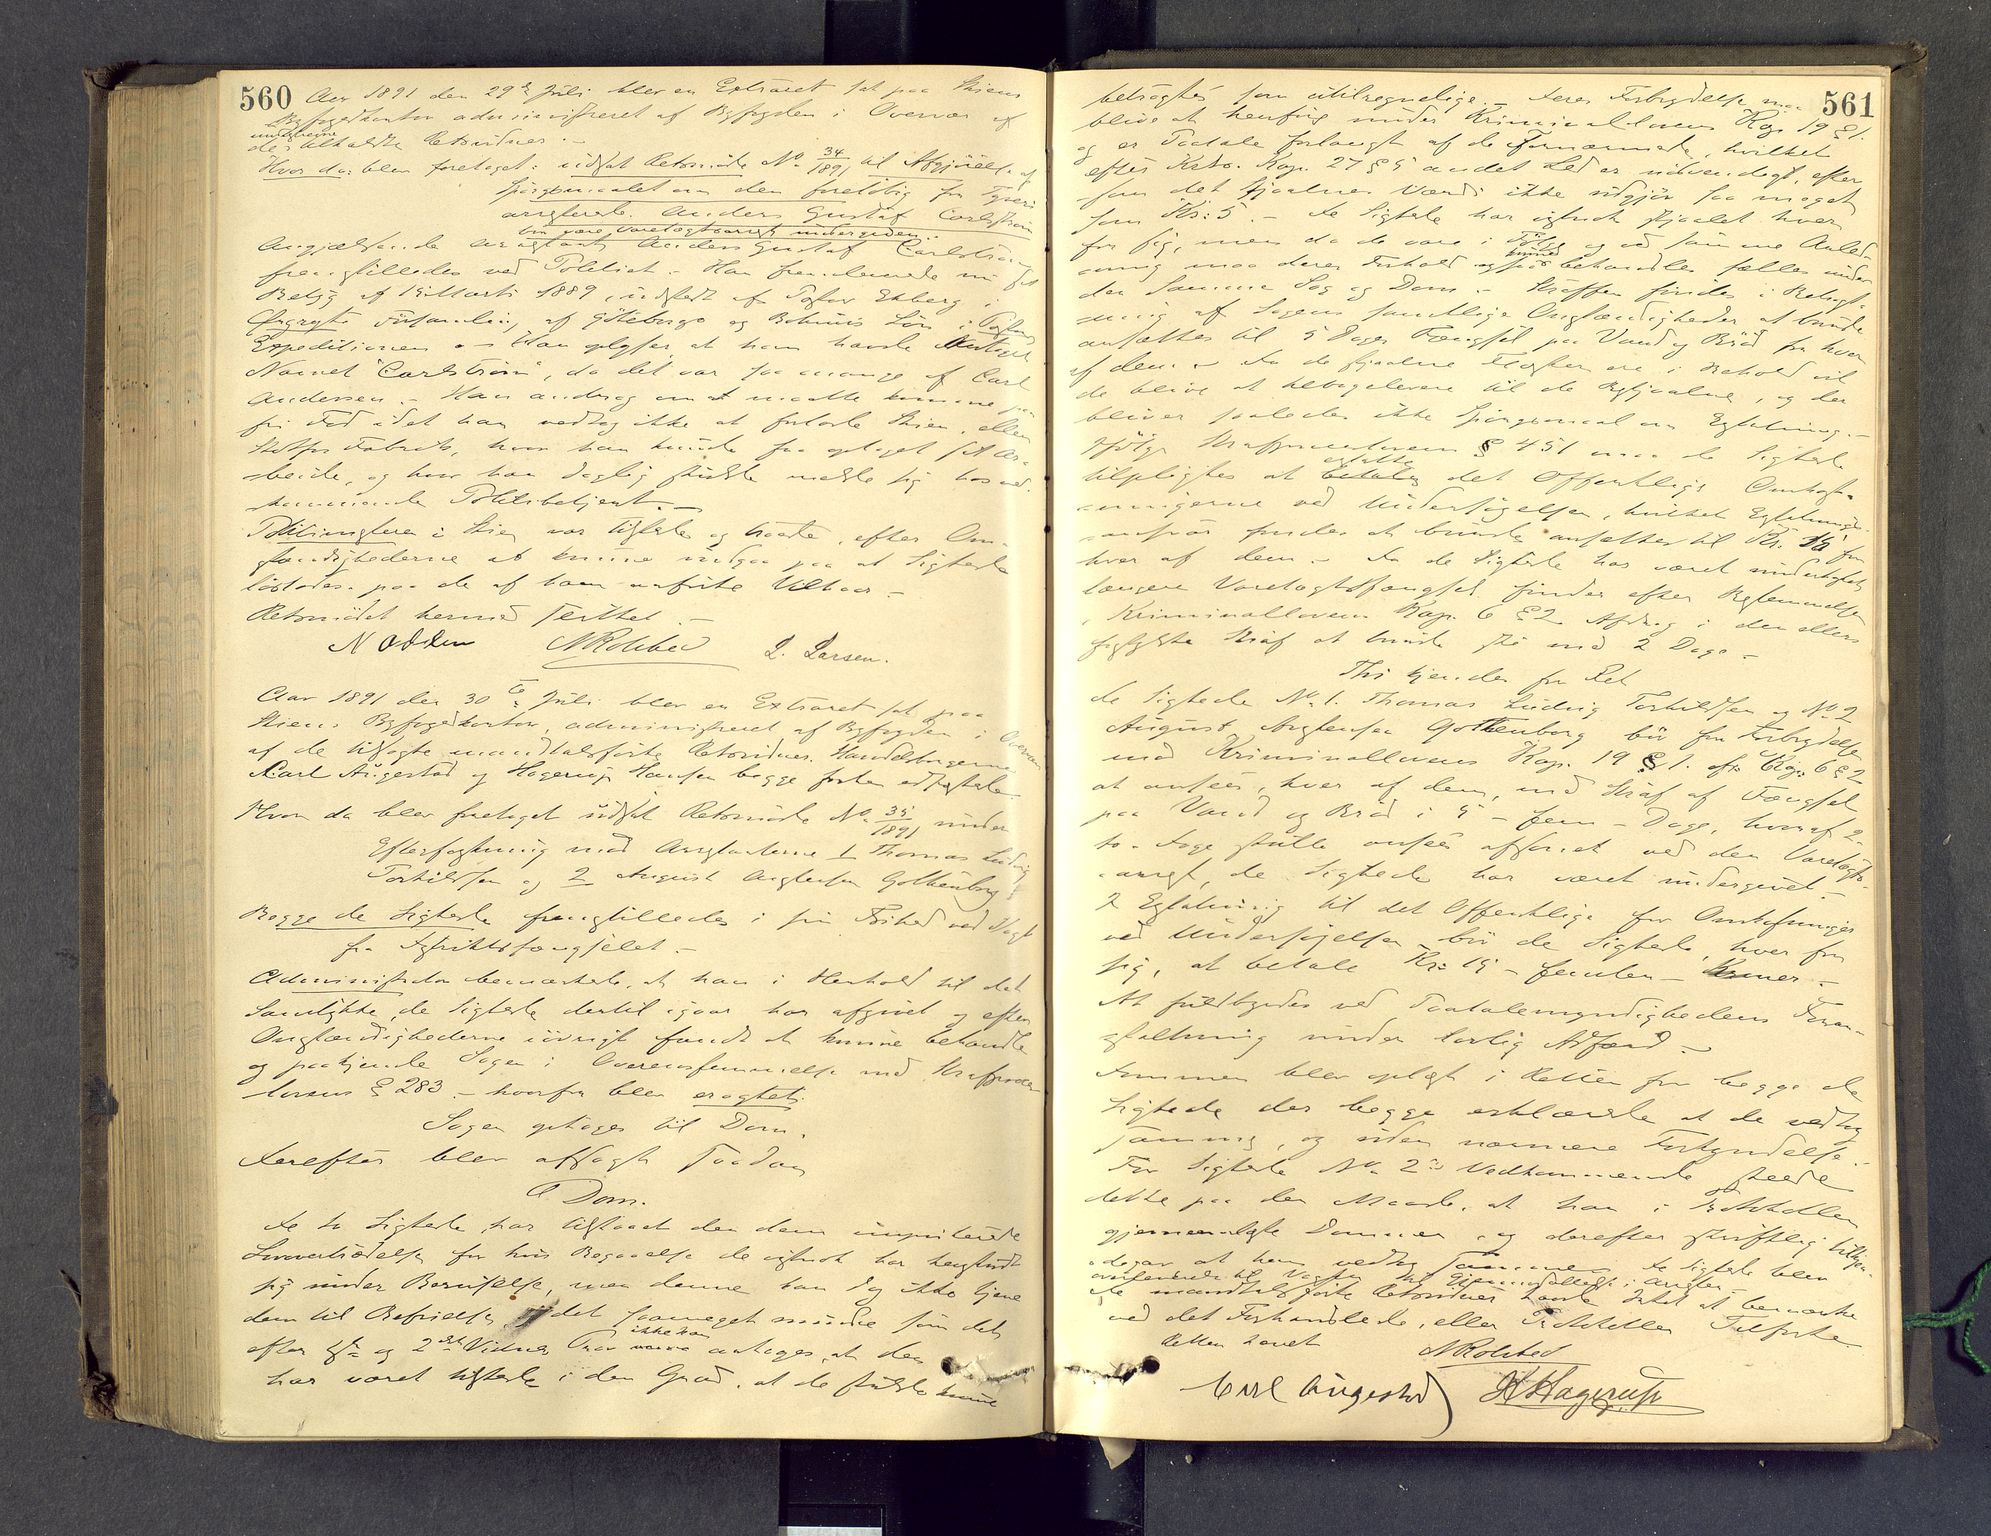 560
Aar 1891 den 29de Juli blev en Extraret sat paa Skiens
Byfogedkontor administreret af Byfogden i Overvær af
undertegnede
de tilkaldte Retsvidner. -
Hvor da blev foretaget: udsat Retsmøde No 34/1891 til Afgjørelse af
Spørgsmaalet om den foreløbig for Tyveri
arresterede Anders Gustaf Carlstrøm
bør være Varetægtsarrest undergiven.
Angjældende arrestant Anders Gustaf Carlstrøm
fremstilledes ved Politiet. - Han fremleverede nu
Betyg af Marts 1889, udstedt af Pastor Ekberg i
Örgryte Församling, af Göteborgs og Bohus Län i Pastors
Expeditionen. - Han oplyser, at han havde
Navnet "Carlstrøm", da det var saa mange af Carl
Andersen. - Han androg om at maatte komme paa
fri Fod idet han vedtog ikke at forlade Skien, eller
Fabrik, hvor han kunde faa optaget sit Ar-
beide, og hvor han daglig skulde melde sig hos ved-
kommende Politibetjent. -
Politimesteren i Skien var tilstede og troede, efter Om-
stændighederne at kunne indgaa paa at Sigtede
løslades paa de af ham anførte Vilkaar. -
Retsmødet hermed sluttet. -
N Odden NRolsted L. Larsen.
Aar 1891 den 30te Juli blev en Extraret sat paa
Skiens Byfogedkontor administreret af Byfogden i Overvær
af de tilsagte mandtalsførte Retsvidner Handelsborgerne
Carl Augestad og Hagerup Hansen begge forhen edfæstede.
Hvor da blev foretaget udsat Retsmøde No 35/1891 under
Efterforskning mod Arrestanterne 1 Thomas Ludvig
Torkildsen og 2 August Gothenborg
Begge de Sigtede fremstilledes i sin Frihed ved Vagt
fra Distriktsfængslet. -
Administrator bemærkede, at han i Henhold til det
Samtykke, de Sigtede dertil igaar har afgivet og efter
Omstændighederne iøvrigt fandt at kunne behandle
og paakjende Sagen i Overensstemmelse med Straffeproces-
lovens § 283. - hvorfor blev eragtet:
Sagen optages til Dom.
Derefter blev afsagt saadan
Dom.
De to Sigtede har tilstaaet den dem imputerede
Lovovertrædelse for hvis Begaaelse de istnok har
sig under Beruselse, men denne kan dog ikke tjene
dem til Befrielse, idet saameget mindre som det
ikke kan
efter 1ste og 2det Vidnes Prov antages, at den
har været tilstede i den Grad, at de skulde kunne
561
betragtes som utilregnelige. - Deres Forbrydelse maa
blive at henføre under Kriminallovens Kap 19 § 1.
og er Paatale forlangt af de Fornærmede, hvilket
efter Krlo. Kap. 27 § 5 andet Led er nødvendigt, efter-
som det stjaalnes Værdi ikke udgjør saa meget
som Kr: 5. - De Sigtede har istnok stjaalet hver
for sig, men da de vare i Følge og ved samme Anled-
ning maa deres Forhold behandles fælles under
den samme Sag og Dom. - Straffen findes i Betragt-
ning af Sagens samtlige Omstændigheder at burde
ansættes til 5 Dages Fængsel paa Vand og Brød for hver
af dem. - Da de stjaalne er i Behold vil
de blive at tilbagelevere til de Bestjaalne, og der
bliver saaledes ikke Spørgsmaal om Erstatning. -
Ifølge Straffeproceslovens § 451 maa de Sigtede
erstatte
tilpligtes at betale det Offentlige Omkost-
ningerne ved Undersøgelsen, hvilket Erstatnings-
ansvar findes at burde ansættes til Kr. 15 for
hver af dem. - Da de Sigtede har været undergivet
længere Varetægtsfængsel finder efter Bestemmelsen
i Kriminallovens Kap. 6 § 2 Afdrag i den ellers
forskyldte Straf at burde ske med 2 Dage. -
Thi kjendes for Ret
De Sigtede No 1. Thomas Ludvig Torkildsen og No 2
August Gothenborg bør for Forbrydelse
mod Kriminallovens Kap. 19 § 1. cfr. Kap. 6 § 2
at ansees, hver af dem, med Straf af Fængsel
paa Vand og Brød i 5 - fem - Dage, hvoraf 2
to - Dage skulle ansees afsonet ved den Varetægts-
arrest, de Sigtede har været undergivet. -
I Erstatning til det Offentlige for Omkostninger
ved Undersøgelsen bør de Sigtede, hver for
sig, at betale Kr: 15 - femten - Kroner. -
At fuldbyrdes ved Paatalemyndighedens Foran-
staltning under lovlig Adfærd. -
Dommen blev oplæst i Retten for begge de
Sigtede der begge erklærede at de vedtog
samme, og uden nærmere Forkyndelse. -
For Sigtede No 2's Vedkommende skede
dette paa den Maade, at han i Protokollen
gjennemlæste Dommen, og derefter skriftlig tilkjen-
degav at han vedtog samme. De Sigtede blev
overleverede til Vagten til Gjenindsættelse i arrest. -
De mandtalsførte Retsvidner havde Intet at bemærke
ved det Forhandlede, eller Protokollen Tilførte
Retten hævet
NRolsted
Carl Augestad H Hagerup